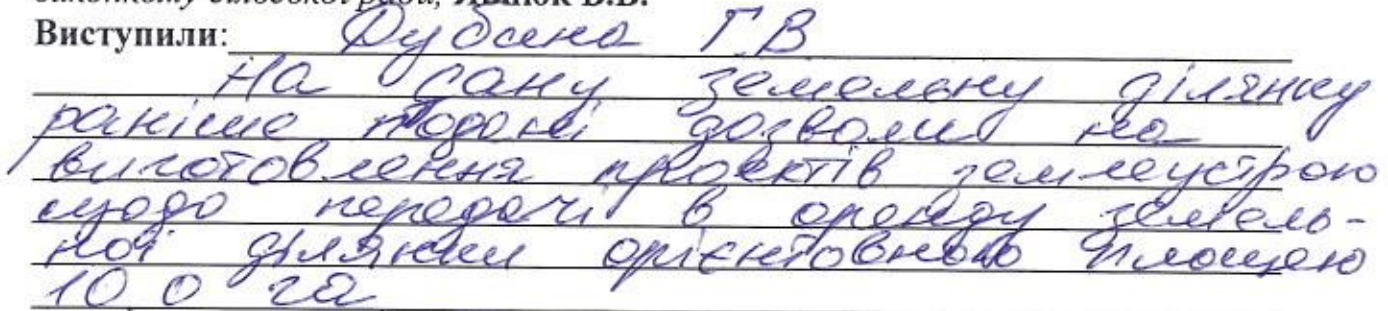 виконкому сільської ради, Яванюк В.В.
Виступили: Дубина Г.В
На дану земельну ділянку
раніше подані дозволи на
виготовлення проектів землеустрою
щодо передачі в оренду земель-
ної ділянки орієнтовною площею
10 0 га